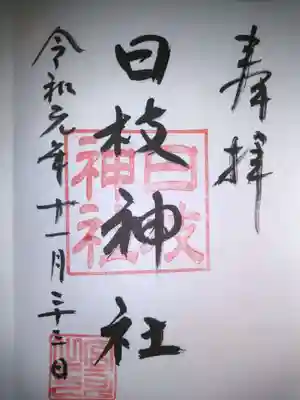 奉拝
日枝神社
日枝
神社
令和元年十一月二十三日